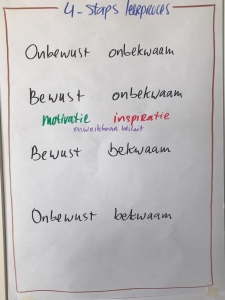 4-staps leerproces
Onbewust onbekwaam
Bewust onbekwaam
motivatie inspiratie
onwrikbaar besluit
Bewust bekwaam
Onbewust bekwaam